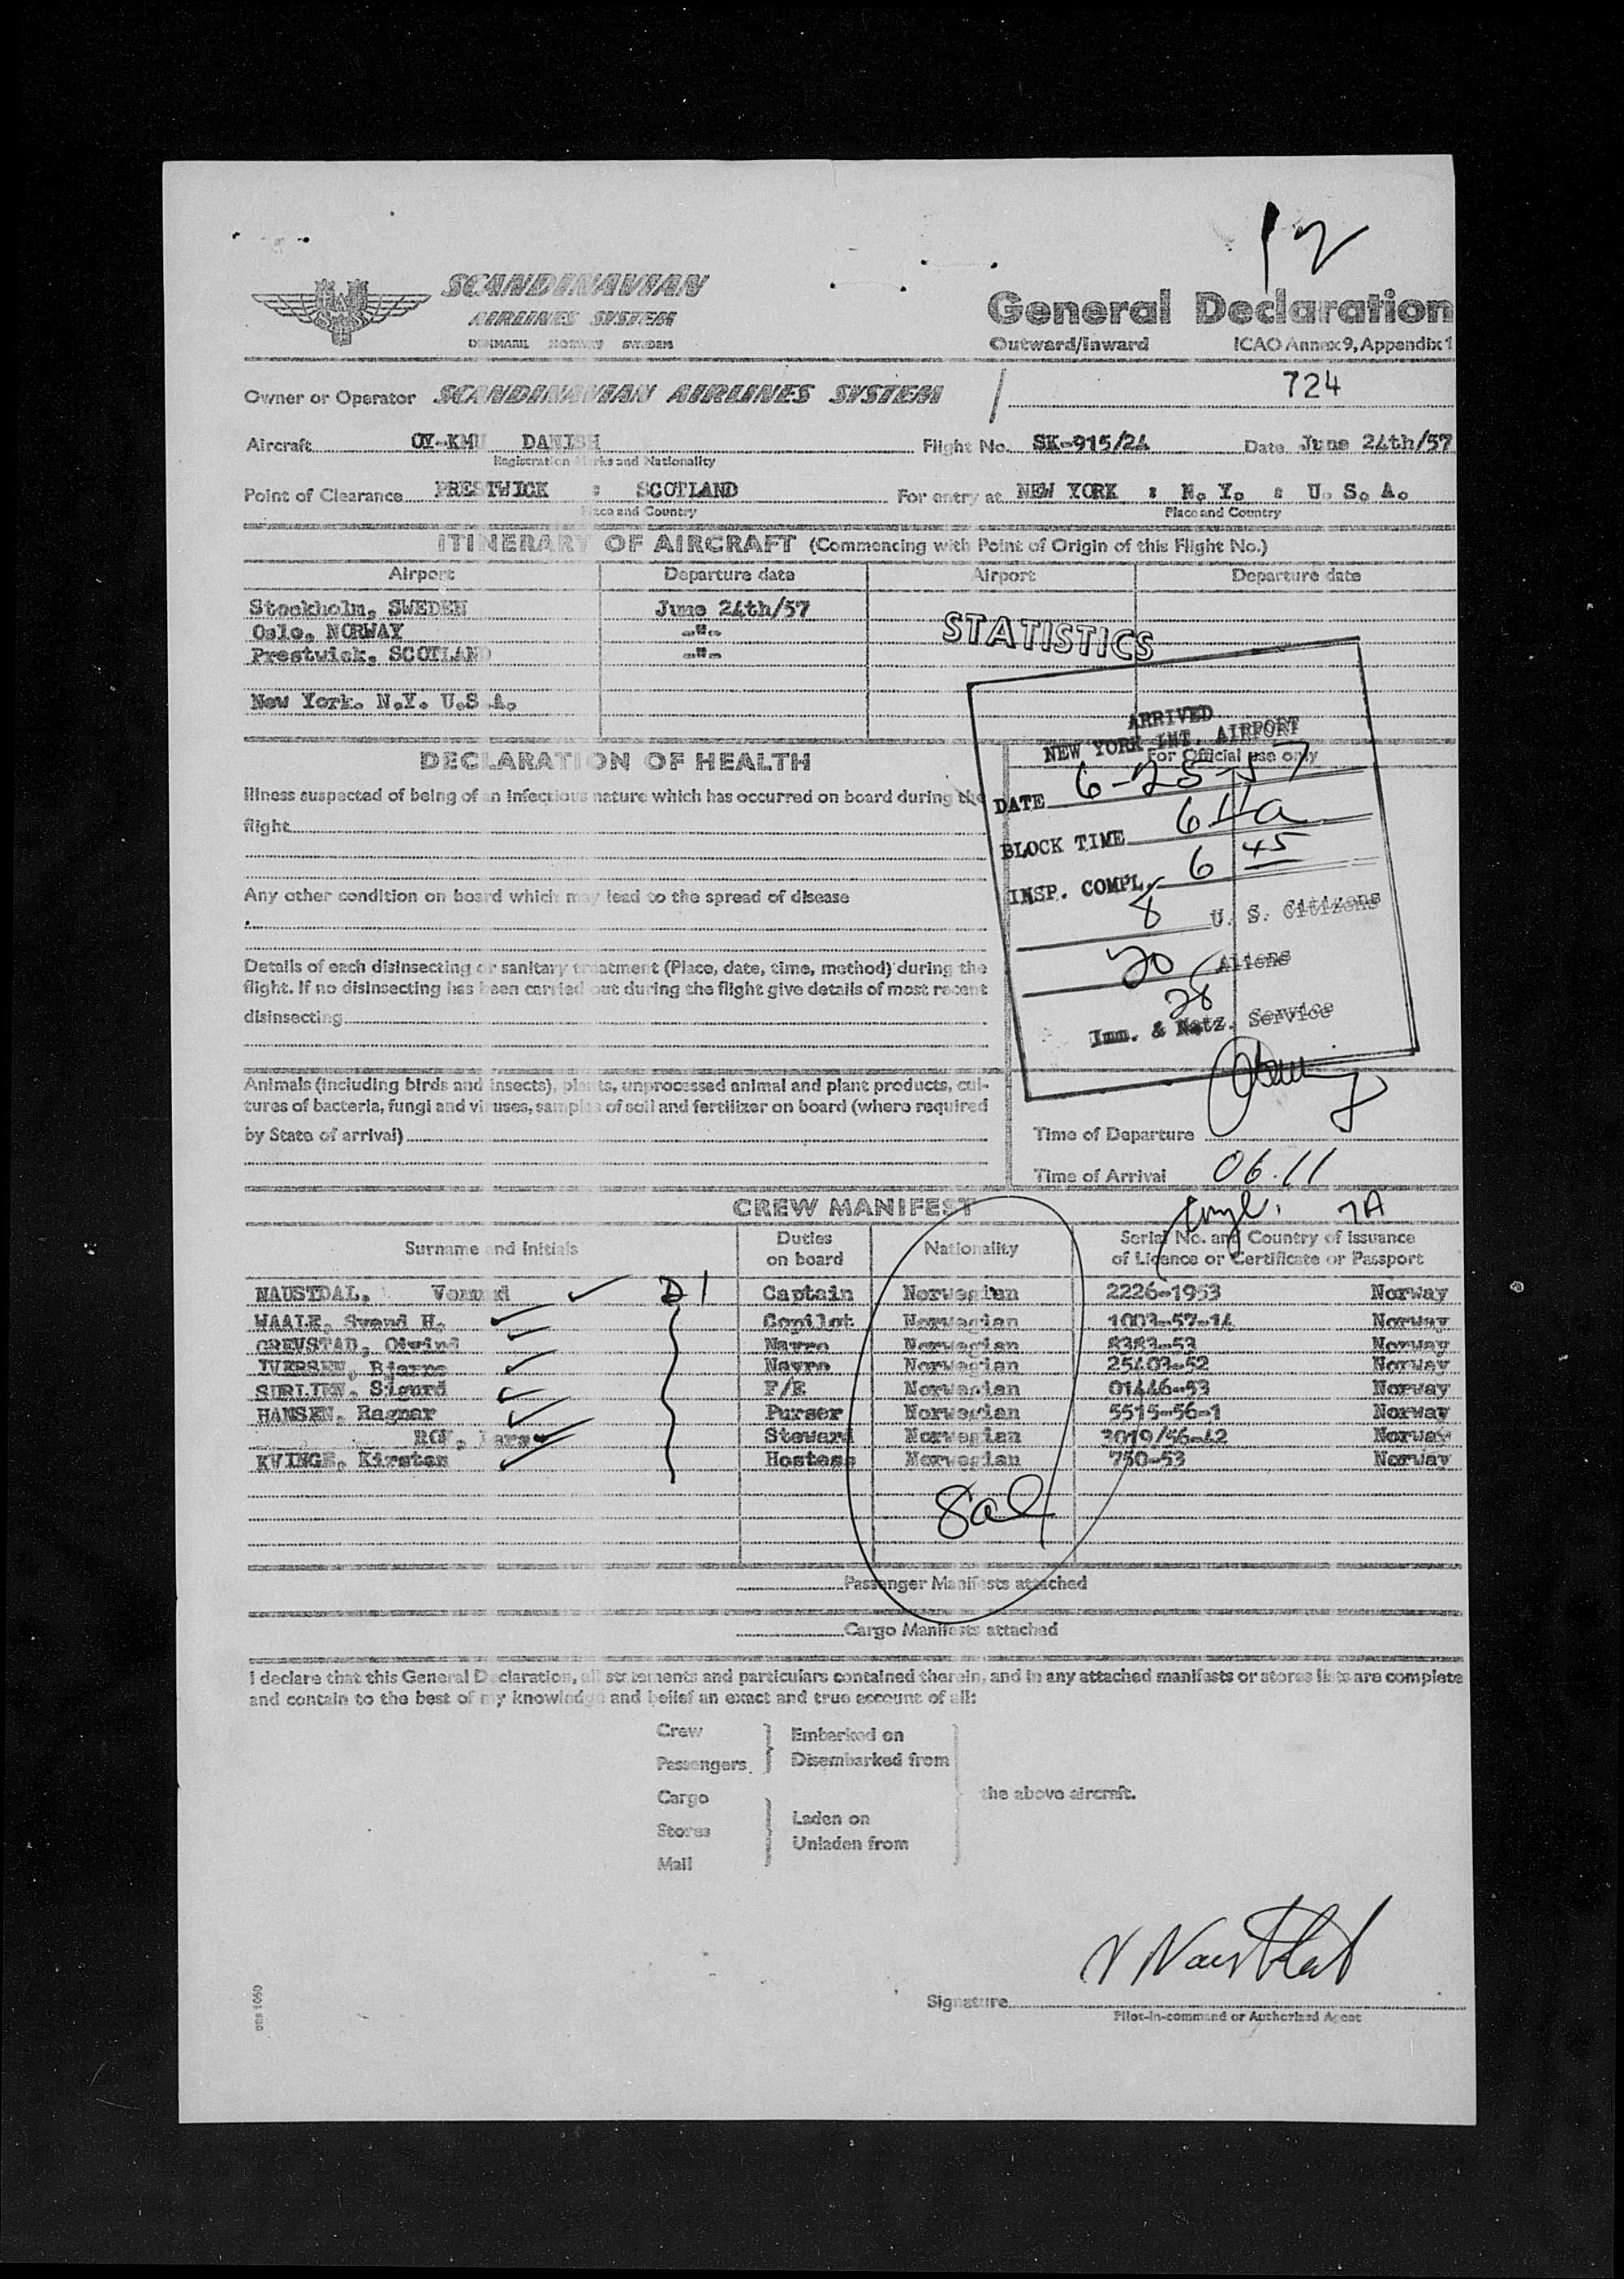 12
SCANDINAVIAN
AIRLINES SYSTEM
DENMARK NORWAY SWEDEN
General Declaration
Outward/Inward ICAO Annex 9, Appendix 1
Owner or Operator SCANDINAVIAN AIRLINES SYSTEM / 724
Aircraft OY-KMU DANISH Flight No. SK-915/24 Date June 24th/57
Registration Marks and Nationality
Point of Clearance PRESTWICK : SCOTLAND For entry at NEW YORK : N. Y. : U. S. A.
Place and Country Place and Country
ITINERARY OF AIRCRAFT (Commencing with Point of Origin of this Flight No.)
Airport Departure date Airport Departure date
Stockholm, SWEDEN June 24th/57
Oslo. NORWAY -"-
Prestwick. SCOTLAND -"-
New York. N.Y. U.S.A.
STATISTICS
ARRIVED
NEW YORK INT. AIRPORT
For Official use only
DATE 6-25-57
BLOCK TIME 6 11a
INSP. COMPL. 6 45
8 U. S. Citizens
20 Aliens
28
Imm. & Natz. Service
DECLARATION OF HEALTH
Illness suspected of being of an infectious nature which has occurred on board during the
flight
Any other condition on board which may lead to the spread of disease
Details of each disinsecting or sanitary treatment (Place, date, time, method) during the
flight. If no disinsecting has been carried out during the flight give details of most recent
disinsecting
Animals (including birds and insects), plants, unprocessed animal and plant products, cul-
tures of bacteria, fungi and viruses, samples of soil and fertilizer on board (where required
by State of arrival)
Time of Departure
Time of Arrival 06.11
CREW MANIFEST
7A
Surname and Initials Duties on board Nationality Serial No. and Country of issuance
of Licence or Certificate or Passport
NAUSTDAL, Vemund D1 Captain Norwegian 2226-1953 Norway
WAALE, Svend H. Copilot Norwegian 1003-57-14 Norway
GREVSTAD, Oivind Navro Norwegian 8383-53 Norway
IVERSEN, Bjarne Navro Norwegian 25403-52 Norway
SURLIEN. Sigurd F/E Norwegian 01446-53 Norway
HANSEN. Ragnar Purser Norwegian 5515-56-1 Norway
ROY, Lars Steward Norwegian 3019/56-42 Norway
KVINGE. Kirsten Hostess Norwegian 750-53 Norway
Passenger Manifests attached
Cargo Manifests attached
I declare that this General Declaration, all statements and particulars contained therein, and in any attached manifests or stores lists are complete
and contain to the best of my knowledge and belief an exact and true account of all:
Crew
Passengers
Embarked on
Disembarked from
Cargo
Stores
Mail
Laden on
Unladen from
the above aircraft.
V Naustdal
Signature
Pilot-in-command or Authorized Agent